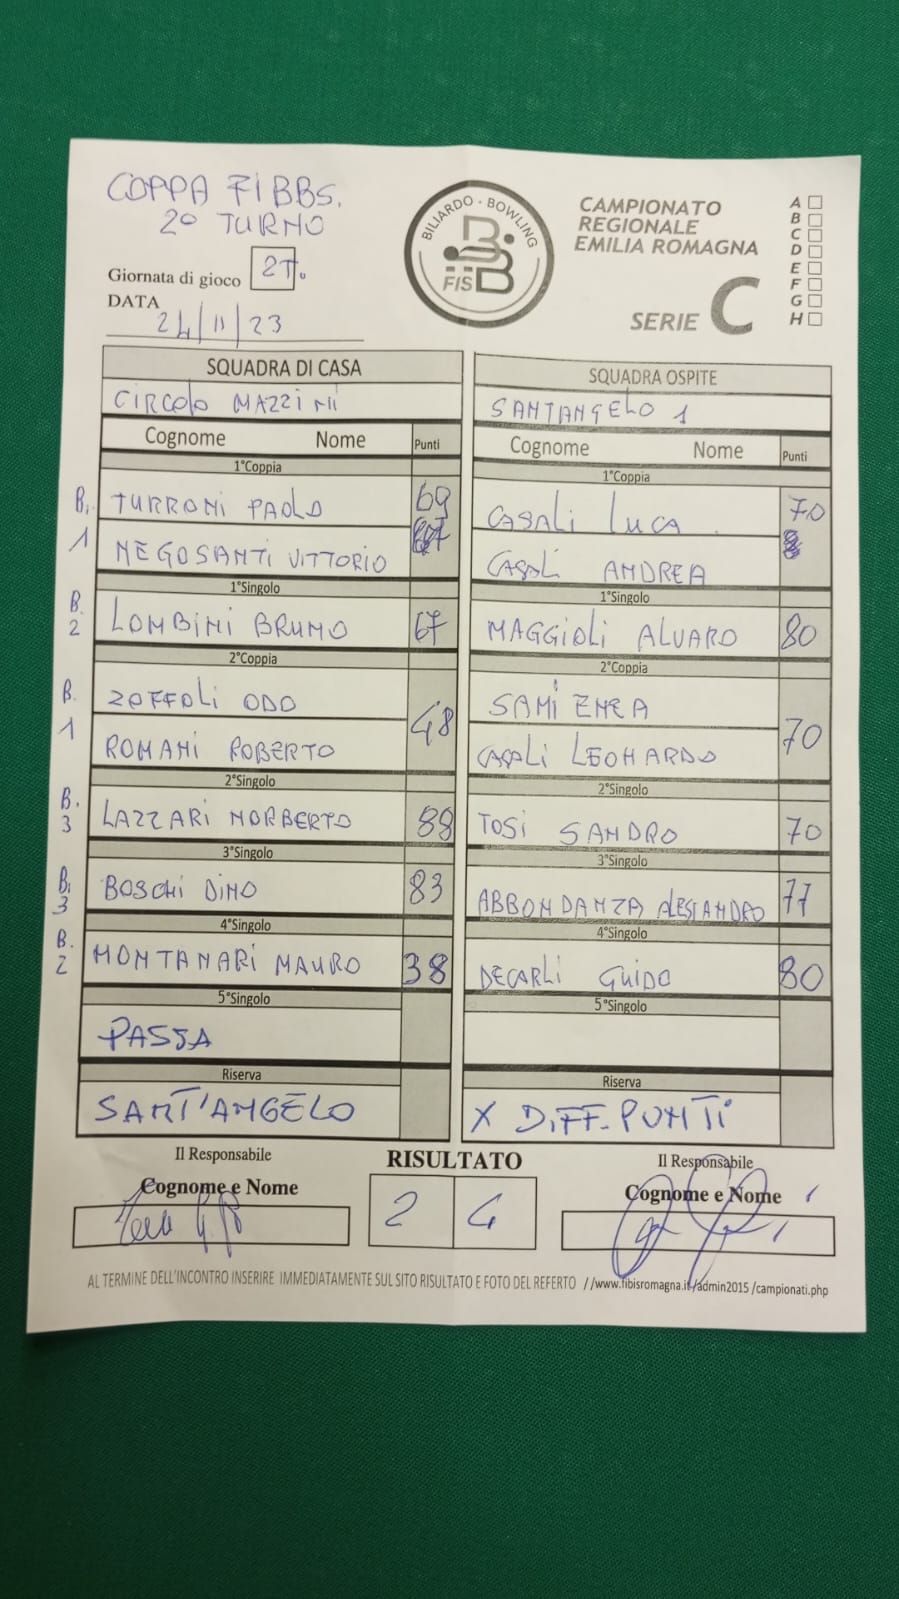 COPPA FIBBS.
2° TURNO
Giornata di gioco 2T.
DATA
24/11/23
BILIARDO - BOWLING
FIS BB
CAMPIONATO
REGIONALE
EMILIA ROMAGNA
SERIE C
A
B
C
D
E
F
G
H
SQUADRA DI CASA
CIRCOLO MAZZINI
Cognome Nome Punti
1°Coppia
B. 1 TURRONI PAOLO 69
NEGOSANTI VITTORIO
1°Singolo
B. 2 LOMBINI BRUNO 67
2°Coppia
B. 1 ZOFFOLI ODO 48
ROMANI ROBERTO
2°Singolo
B. 3 LAZZARI NORBERTO 88
3°Singolo
B. 3 BOSCHI DINO 83
4°Singolo
B. 2 MONTANARI MAURO 38
5°Singolo
PASSA
Riserva
SANT'ANGELO
SQUADRA OSPITE
SANTANGELO 1
Cognome Nome Punti
1°Coppia
CASALI LUCA 70
CASALI ANDREA
1°Singolo
MAGGIOLI ALVARO 80
2°Coppia
SAMI ENEA 70
CASALI LEONARDO
2°Singolo
TOSI SANDRO 70
3°Singolo
ABBONDANZA ALESSANDRO 77
4°Singolo
DECARLI GUIDO 80
5°Singolo
Riserva
X DIFF. PUNTI
Il Responsabile
Cognome e Nome
RISULTATO
2 4
Il Responsabile
Cognome e Nome
AL TERMINE DELL'INCONTRO INSERIRE IMMEDIATAMENTE SUL SITO RISULTATO E FOTO DEL REFERTO //www.fibisromagna.it/admin2015/campionati.php